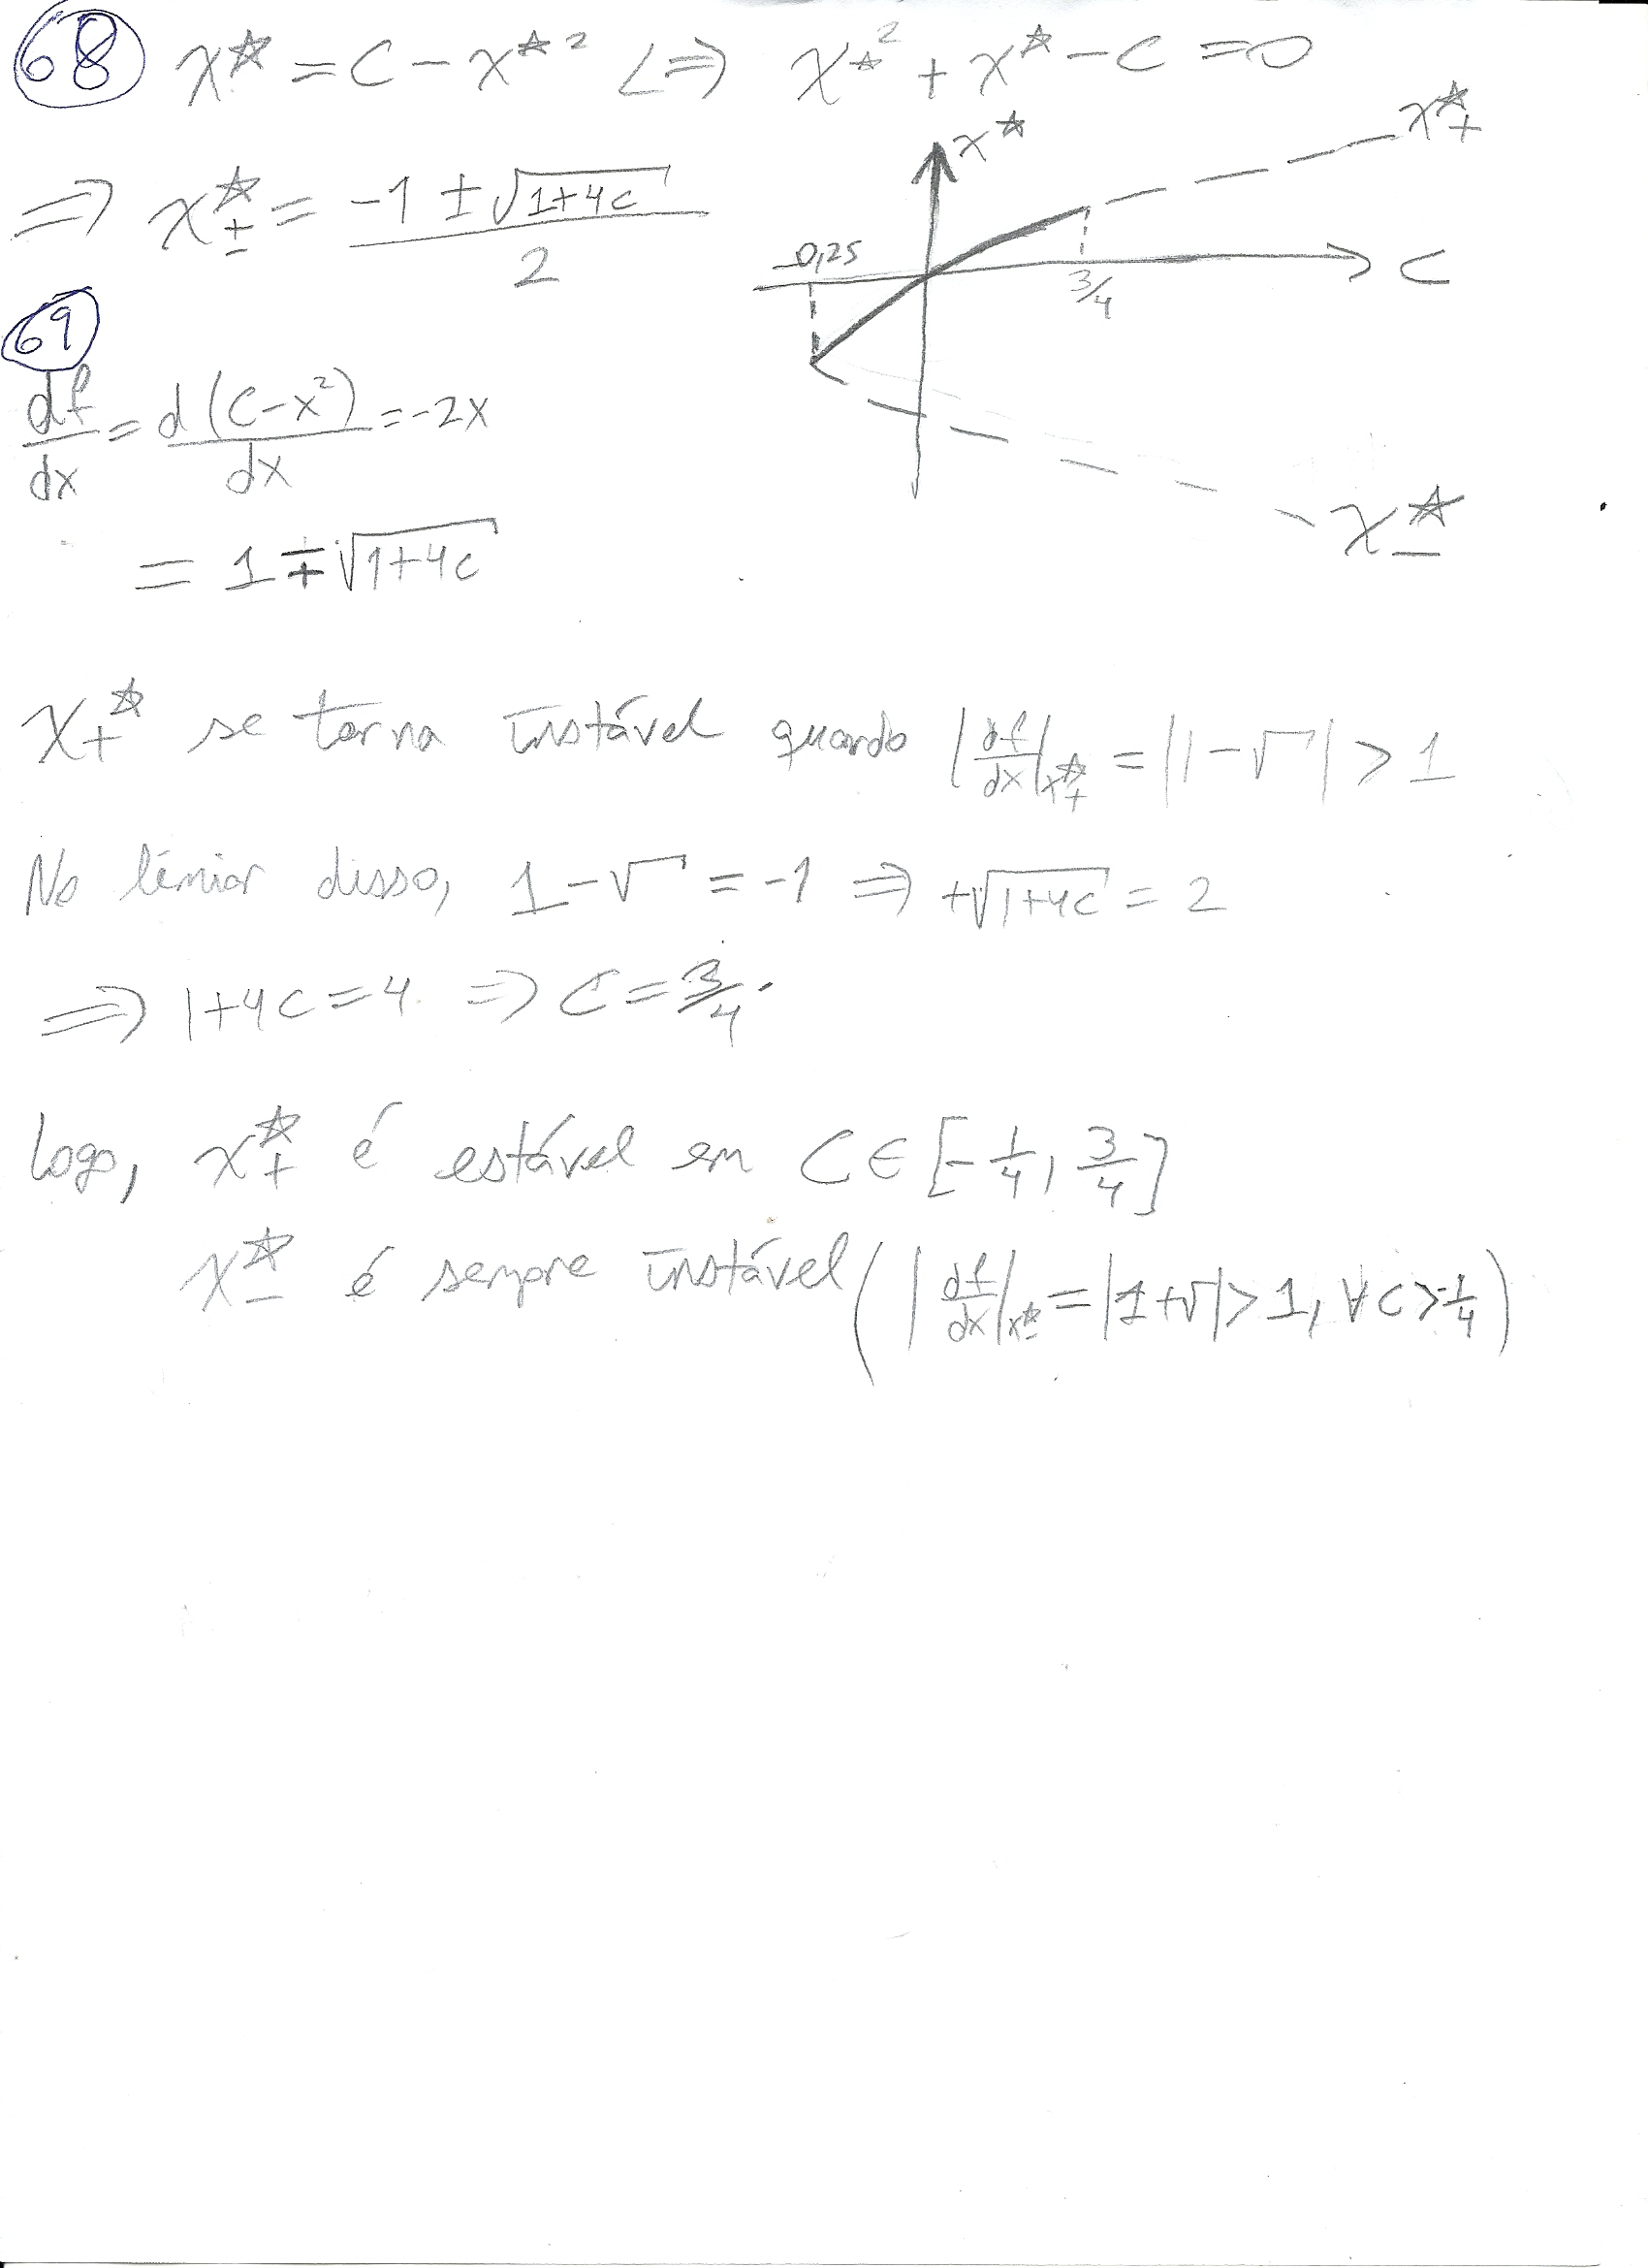 68 x☆ = C - x☆² <=> x☆² + x☆ - C = 0
=> x☆± = (-1 ± √(1+4c))/2
x☆
x☆+
-0,25
3/4
C
x☆-
69
df/dx = d(C-x²)/dx = -2x
= 1 ∓ √(1+4c)
x+☆ se torna instável quando |df/dx|x☆+ = |1-√ | > 1
No limiar disso, 1-√ = -1 => +√(1+4c) = 2
=> 1+4c = 4 => C = 3/4.
Logo, x☆+ é estável em C ∈ [-1/4, 3/4]
x☆- é sempre instável (|df/dx|x☆- = |1+√ | > 1, ∀ C > -1/4)